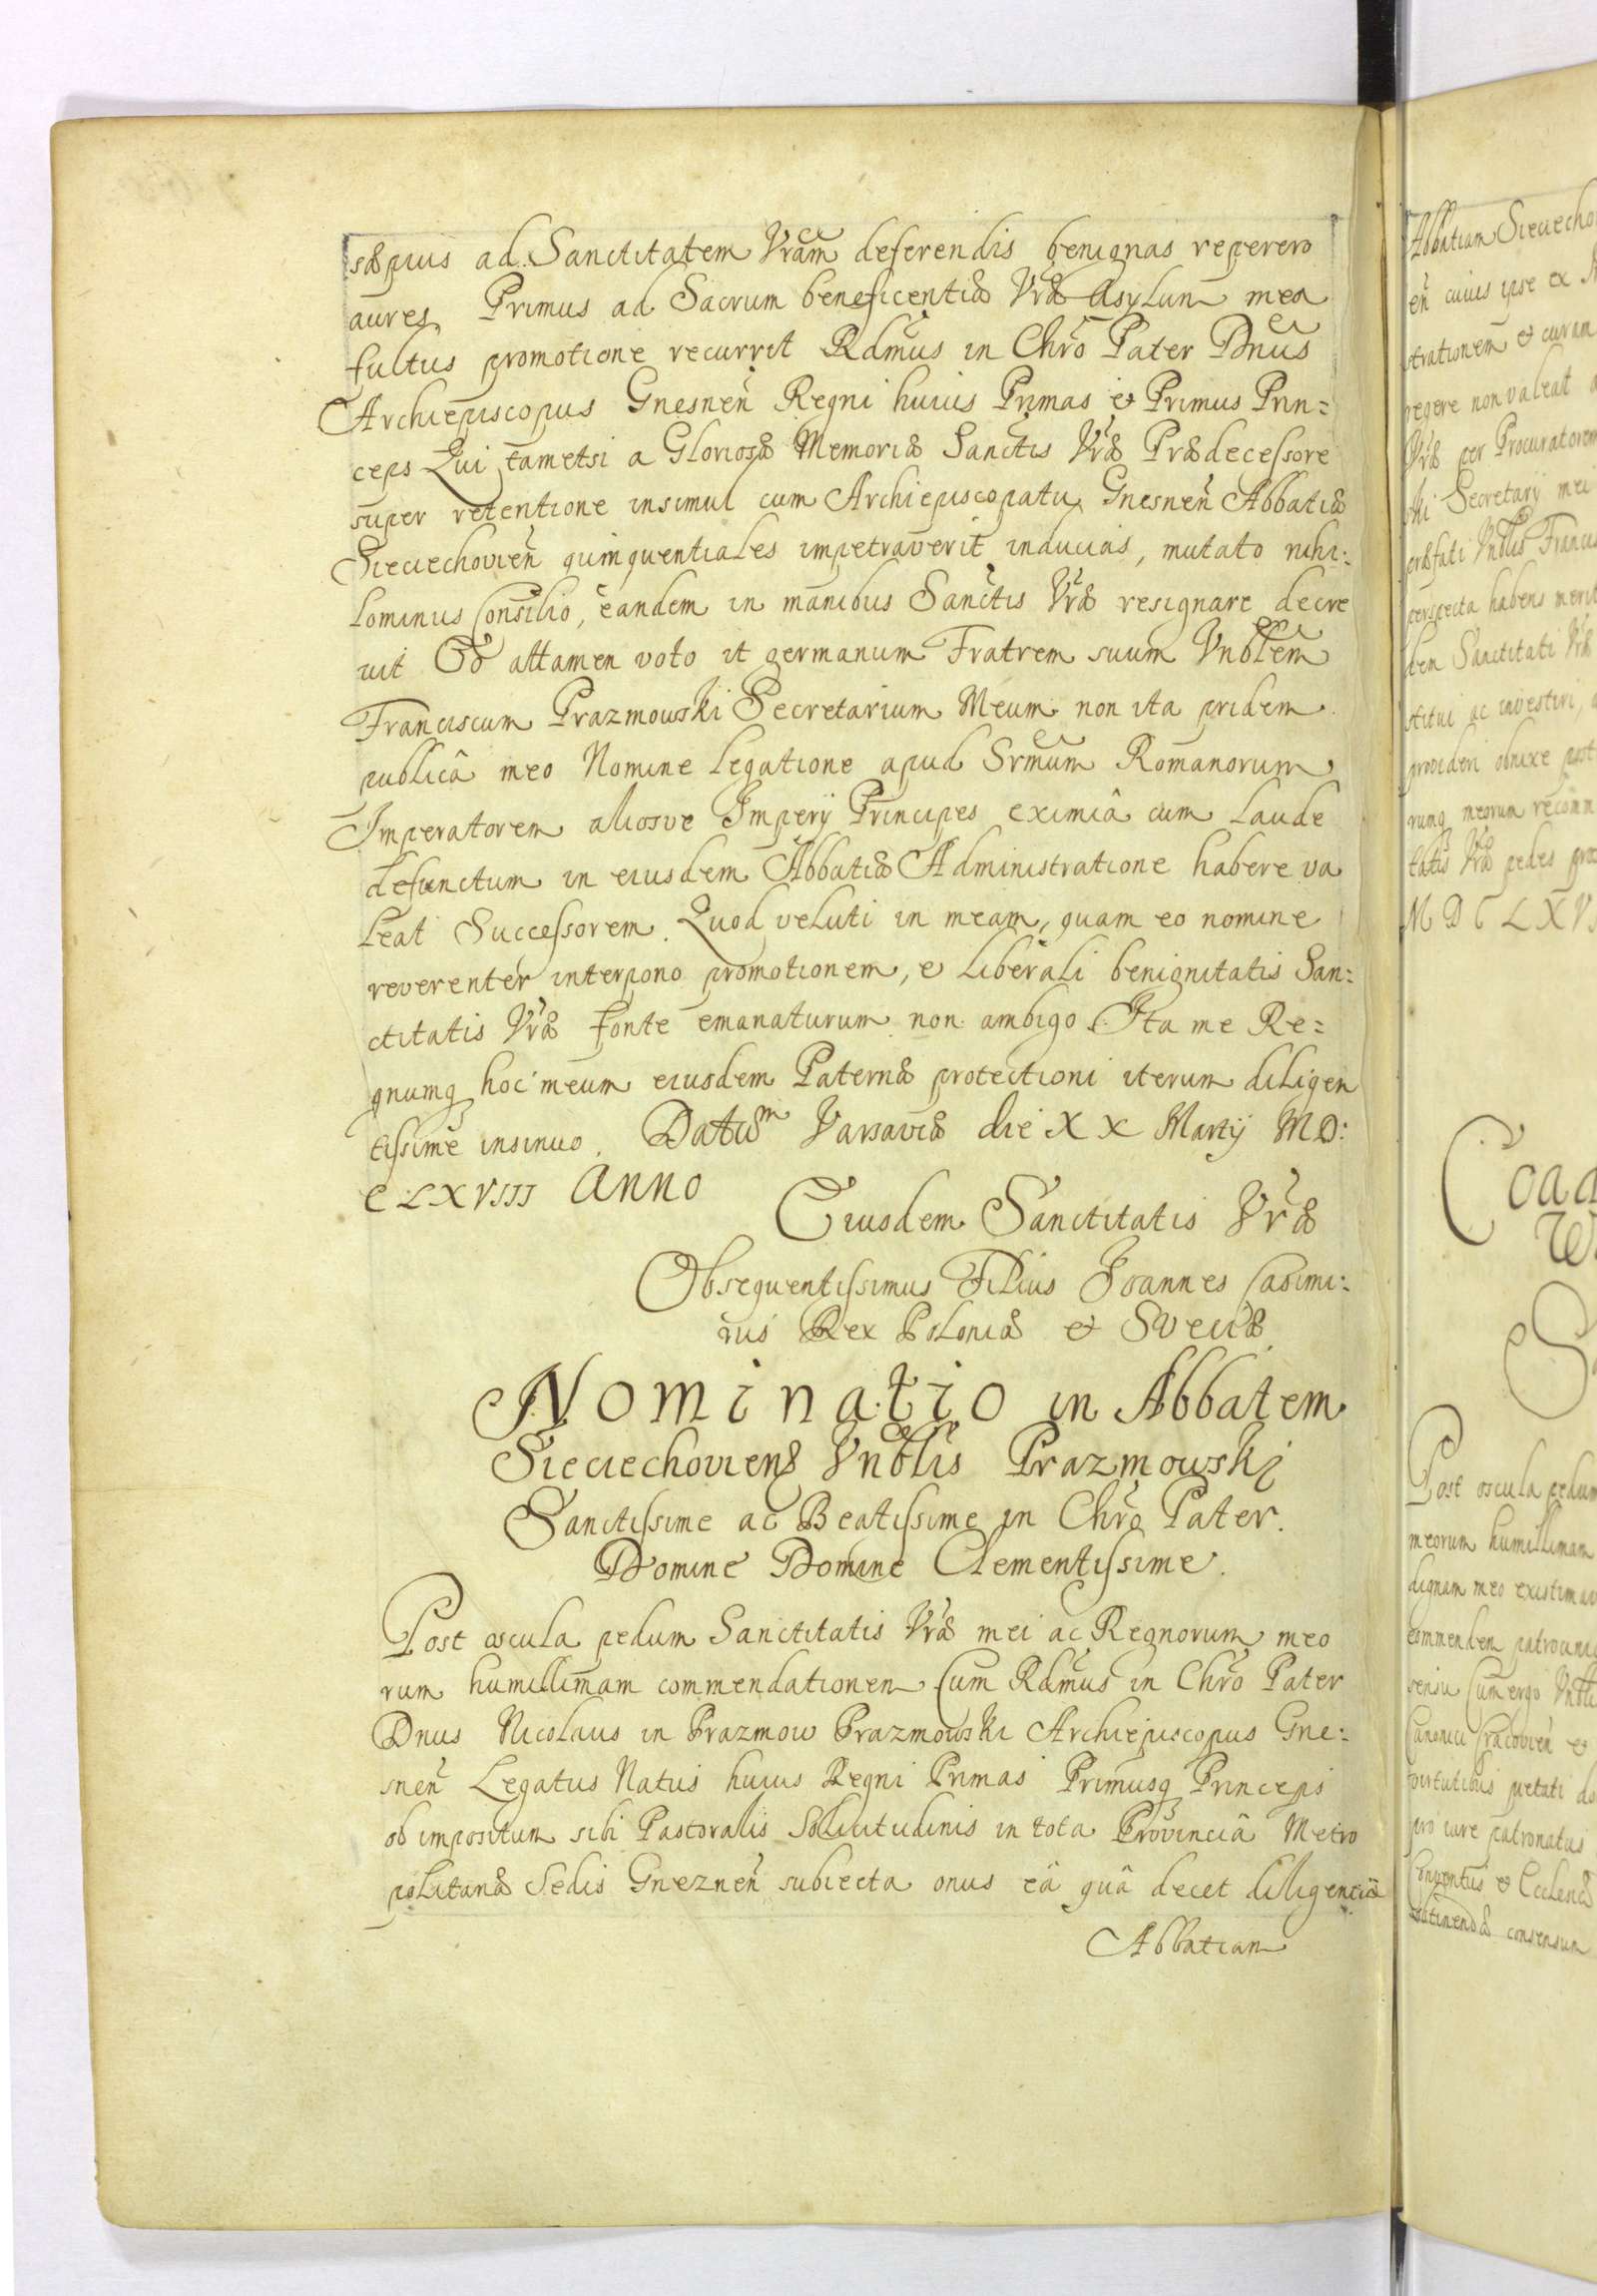 sæpius ad Sanctitatem Vrãm deferendis benignas reperero
aures, Primus ad Sacrum beneficentiæ Vræ Asylum mea
fultus promotione recurrit Rdmus in Chro Pater Dnus
Archiepiscopus Gnesneñ Regni huius Primas et Primus Prin=
ceps Qui tametsi a Gloriosæ Memoriæ Sanctis Vræ Prædecessore
super retentione insimul cum Archiepiscopatu Gnesneñ Abbatiæ
Sieciechovieñ quinquentiales impetraverit inducias, mutato nihi:
lominus Consilio, eandem in manibus Sanctis Vræ resignare decre
vit Eo attamen voto ut germanum Fratrem suum Vnblem
Franciscum Prazmowski Secretarium Meum non ita pridem
publicâ meo Nomine Legatione apud Srmum Romanorum
Imperatorem aliosve Imperij Principes eximiâ cum Laude
defunctum in eiusdem Abbatiæ Administratione habere va
leat Successorem. Quod veluti in meam, quam eo nomine
reverenter interpono promotionem, e liberali benignitatis San:
ctitatis Vræ fonte emanaturum non ambigo. Ita me Re=
gnumq hoc meum eiusdem Paternæ protectioni iterum diligen
tissime insinuo. Datum Varsaviæ die XX Martij MD:
CLXVIII Anno
Eiusdem Sanctitatis Vræ
Obsequentissimus Filius Joannes Casimi:
rus Rex Poloniæ et Sveciæ
Nominatio in Abbatem
Sieciechoviens Vnblis Prazmowski
Sanctissime ac Beatissime in Chro Pater.
Domine Domine Clementissime.
Post oscula pedum Sanctitatis Vræ mei ac Regnorum meo
rum humillimam commendationem Cum Rdmus in Chro Pater
Dnus Nicolaus in Prazmow Prazmowski Archiepiscopus Gne:
sneñ Legatus Natus huius Regni Primas Primusq Princeps
ob impositum sibi Pastoralis Solicitudinis in tota Provinciâ Metro
politanæ Sedis Gnezneñ subiecta onus eâ quâ decet diligentiâ
Abbatiam
Abbatiam Sieciecho
eñ cuius ipse ex
strationem et curam
regere non valeat
Vræ per Procuratorem
ski Secretarij mei
præfati Vnblis Francis
perspecta habens merit
dem Sanctitati Vræ
stitui ac investiri,
provideri obnixe post
rumq meorum recomm
tatis Vræ pedes pro
MDCLXVI
Coad
Post oscula pedum
meorum humillimam
dignam meo existimav
commendem patrocinio
sensu Cum ergo Vnbli
Canonici Cracovieñ et
virtutibus pietati
pro iure patronatus
Conventus et Ecclesiæ
obtinendæ consensum